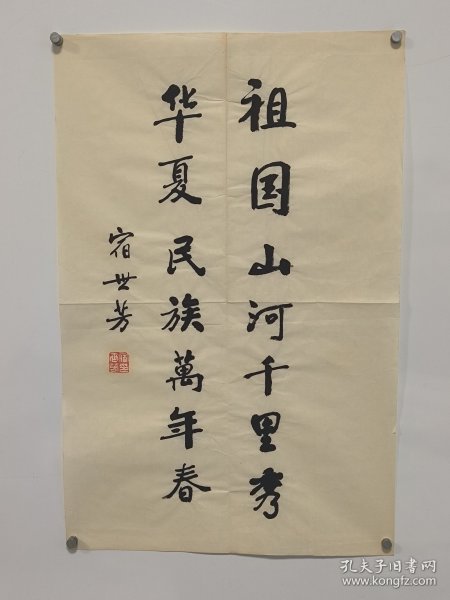 祖国山河千里秀
华夏民族萬年春
宿世芳
孔夫子旧书网
www.kongfz.com